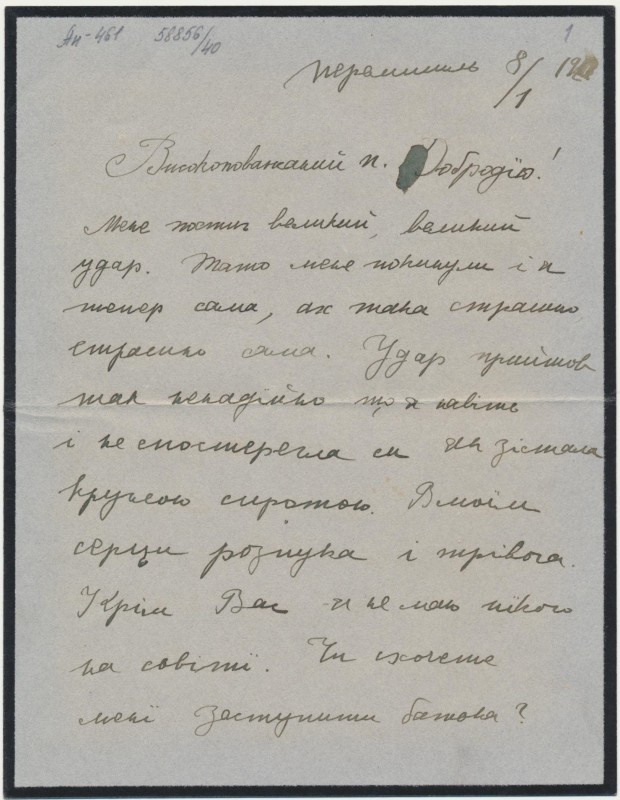 Ян-461 58856/40 1
Перемишль 8/1 19
Високоповажаний п. Добродїю!
Мене постиг великий, великий
удар. Тато мене покинули і я
тепер сама, ах така страшно,
страшно сама. Удар прийшов
так ненадійно що я навіть
і не спостерегла ся як зістала
круглою сиротою. В моїм
серци розпука і трівога.
Крім Вас я не маю нїкого
на сьвітї. Чи схочете
менї заступити батька?